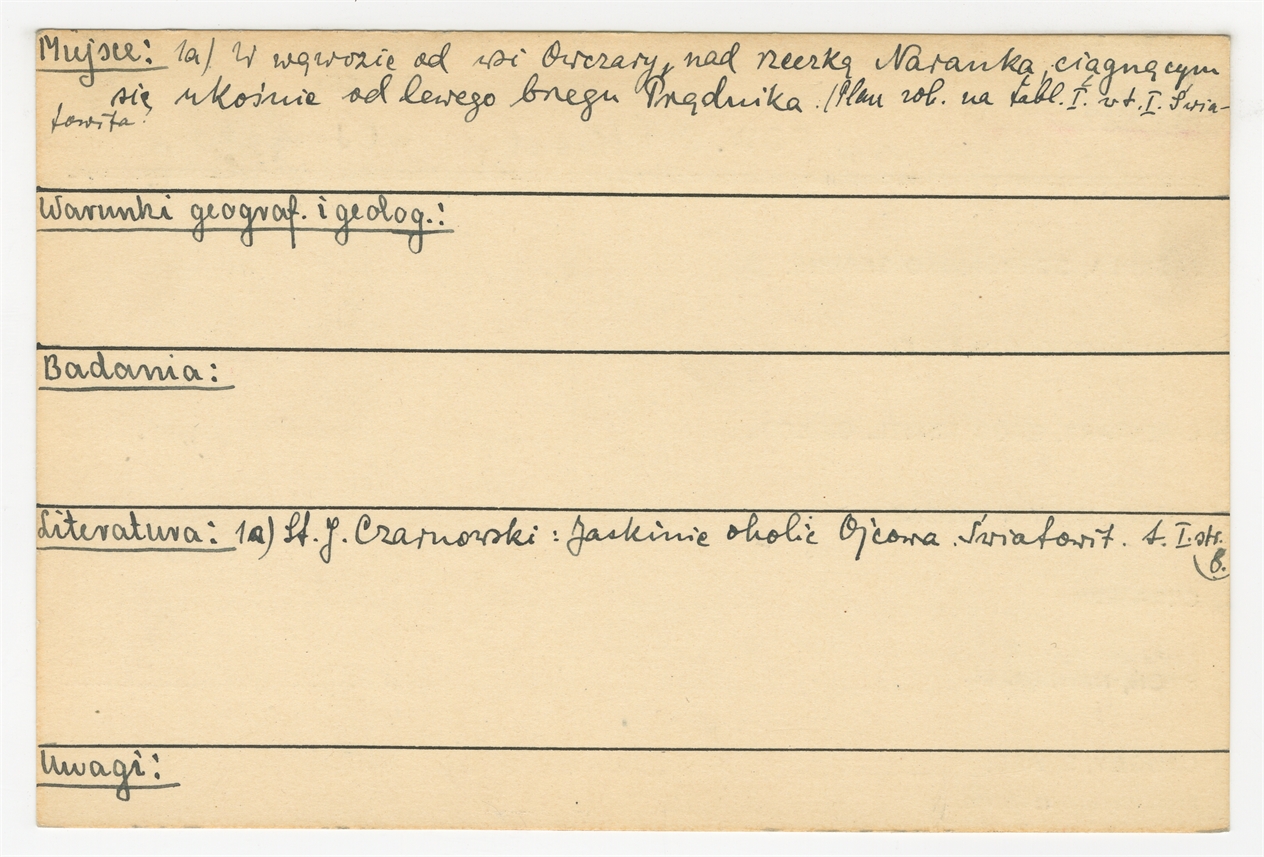 Miejsce: 1a) W wąwozie od wsi Owczary, nad rzeczką Naranką, ciągnącym
się ukośnie od lewego brzegu Prądnika. (Plan rob. na tabl. I. w t. I. Świa-
towita.)
Warunki geograf. i geolog.:
Badania:
Literatura: 1a) St. J. Czarnowski: Jaskinie okolic Ojcowa. Światowit. t. I. str.
8.
Uwagi: